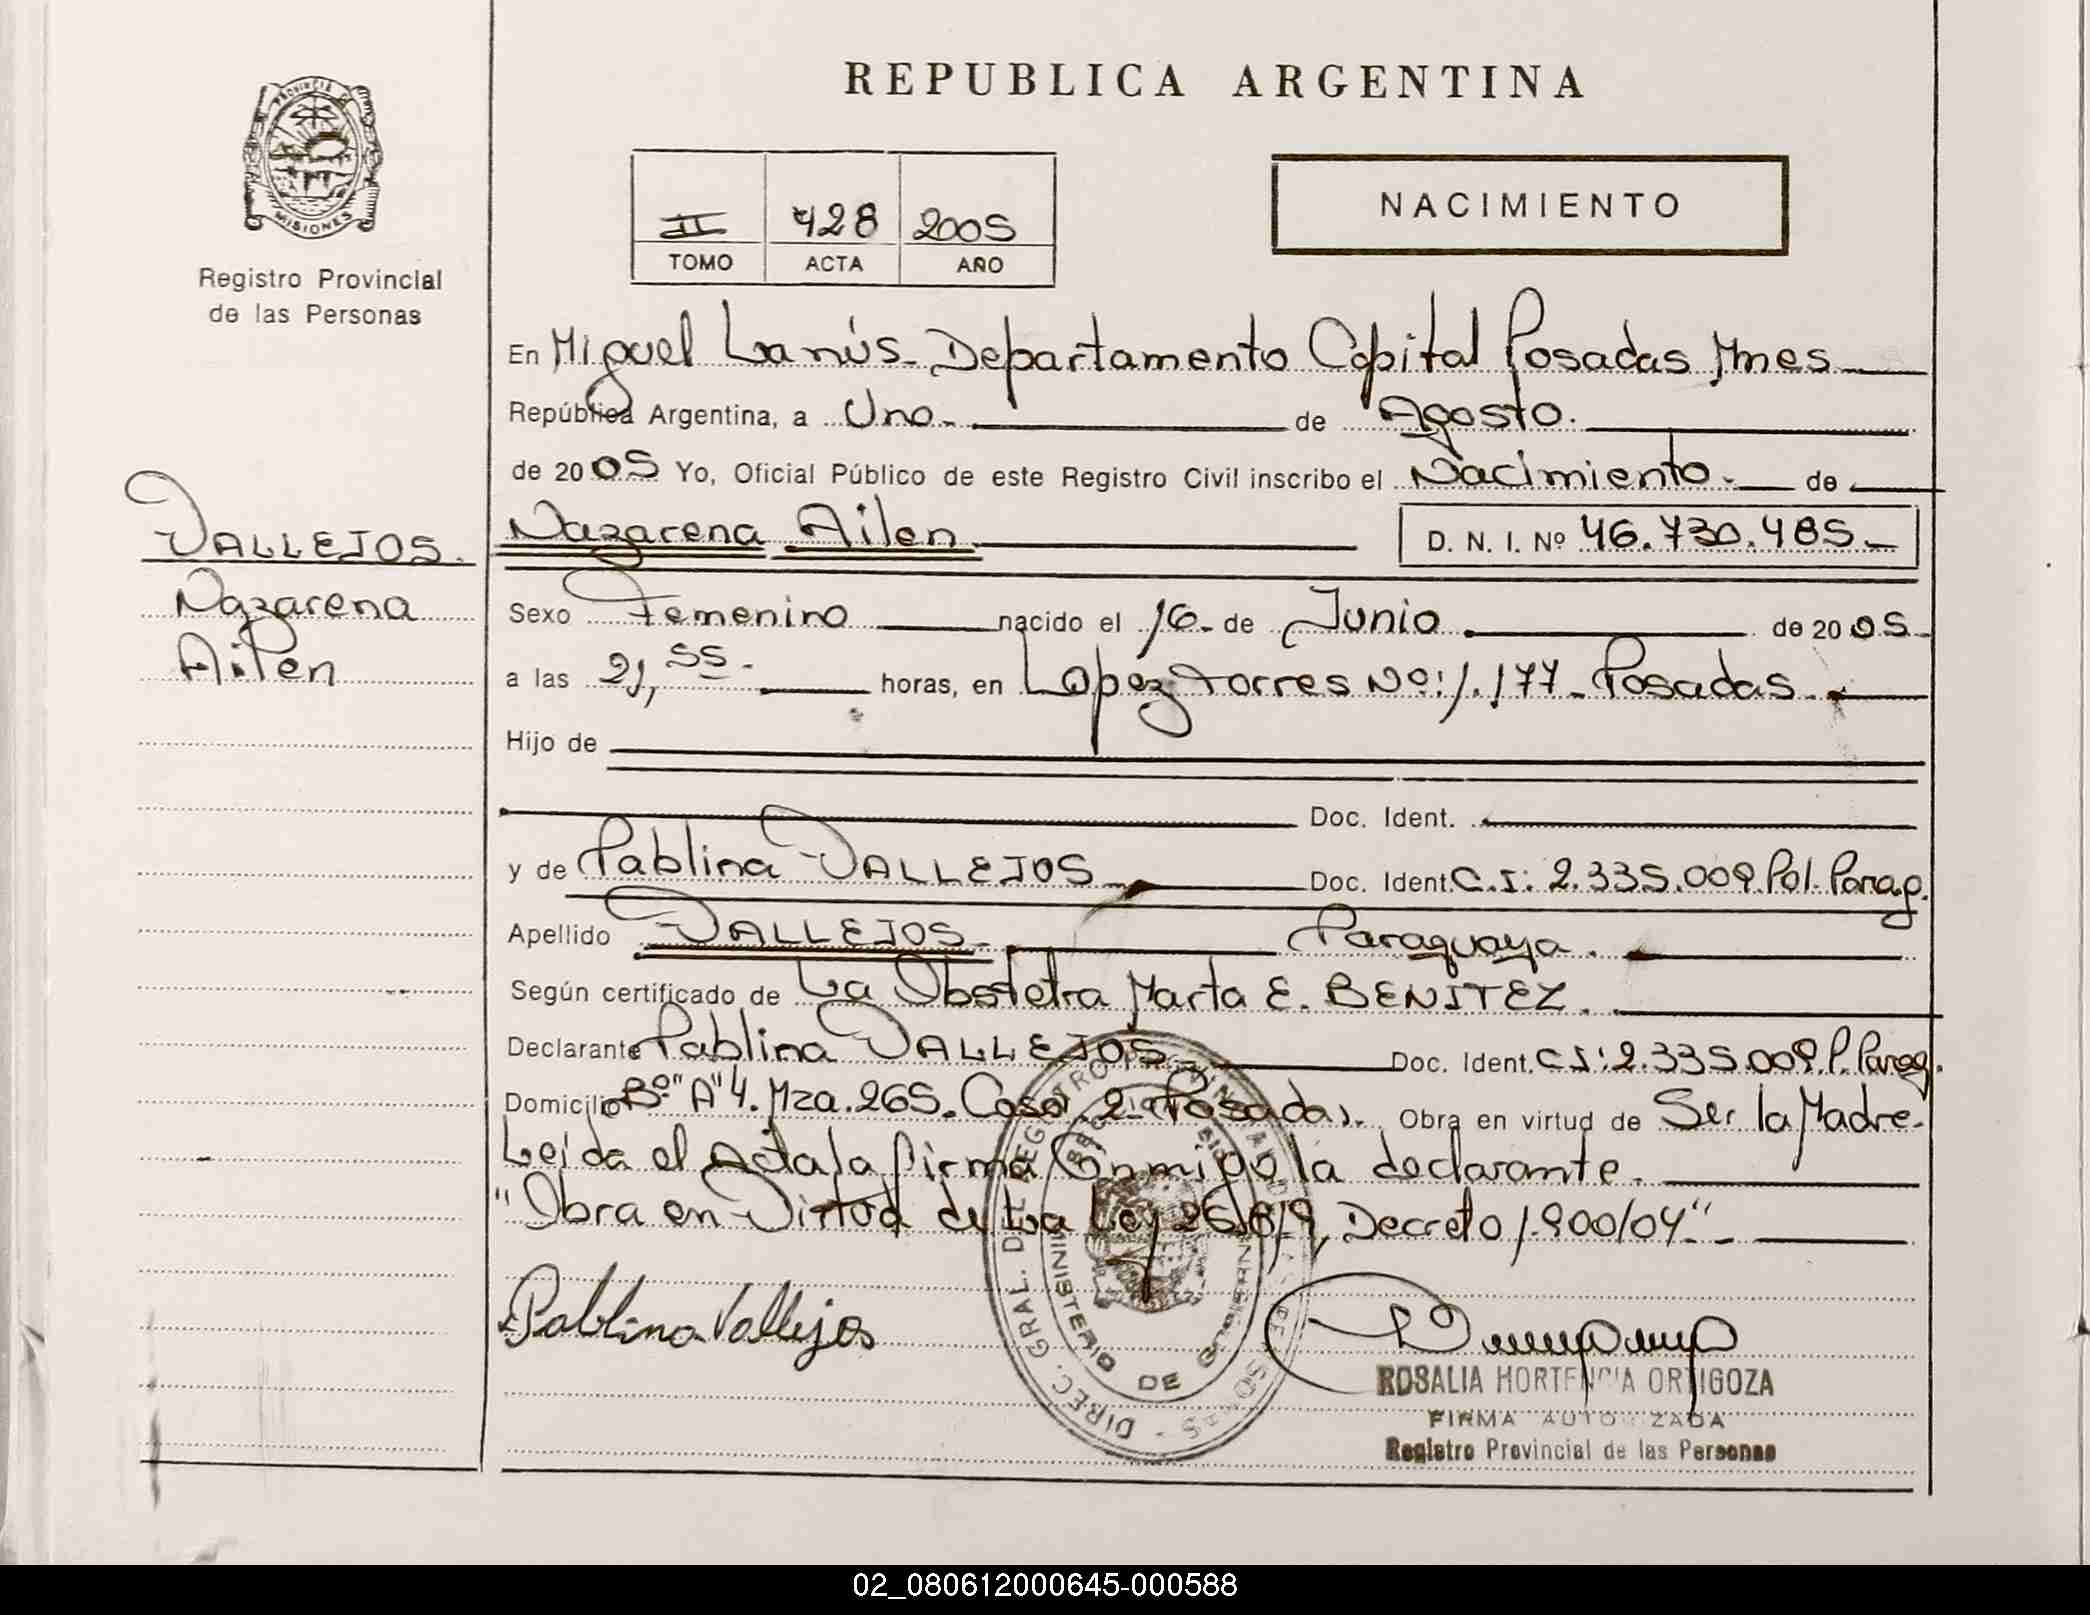 REPUBLICA ARGENTINA
PROVINCIA DE
MISIONES
Registro Provincial
de las Personas
II 428 2005
TOMO ACTA AÑO
NACIMIENTO
En Miguel Lanús - Departamento Capital Posadas Mnes
República Argentina, a Uno.- de Agosto.
de 2005 Yo, Oficial Público de este Registro Civil inscribo el Nacimiento.- de
VALLEJOS.
Nazarena
Ailen
Nazarena Ailen. D. N. I. Nº 46.730.485.-
Sexo Femenino nacido el 16.- de Junio de 2005.-
a las 21,55.- horas, en Lopez Torres Nº: 1.177 - Posadas.-
Hijo de
Doc. Ident.
y de Pablina VALLEJOS.- Doc. Ident. C.I: 2.335.009 Pol. Parag.
Apellido VALLEJOS.- Paraguaya.
Según certificado de La Obstetra Marta E. BENITEZ.
Declarante Pablina VALLEJOS.- Doc. Ident. C.I: 2.335.009 P. Parag.
Domicilio Bº "A" 4. Mza. 265. Casa 2 - Posadas. Obra en virtud de Ser la Madre.
Leída el Acta la firma Conmigo la declarante.
"Obra en Virtud de La Ley 26819, Decreto 1.900/04".-
Pablina Vallejos
DIREC. GRAL. DE REGISTRO PROVINCIAL DE LAS PERSONAS
MINISTERIO DE GOBIERNO
ROSALIA HORTENCIA ORTIGOZA
FIRMA AUTORIZADA
Registro Provincial de las Personas
02_080612000645-000588